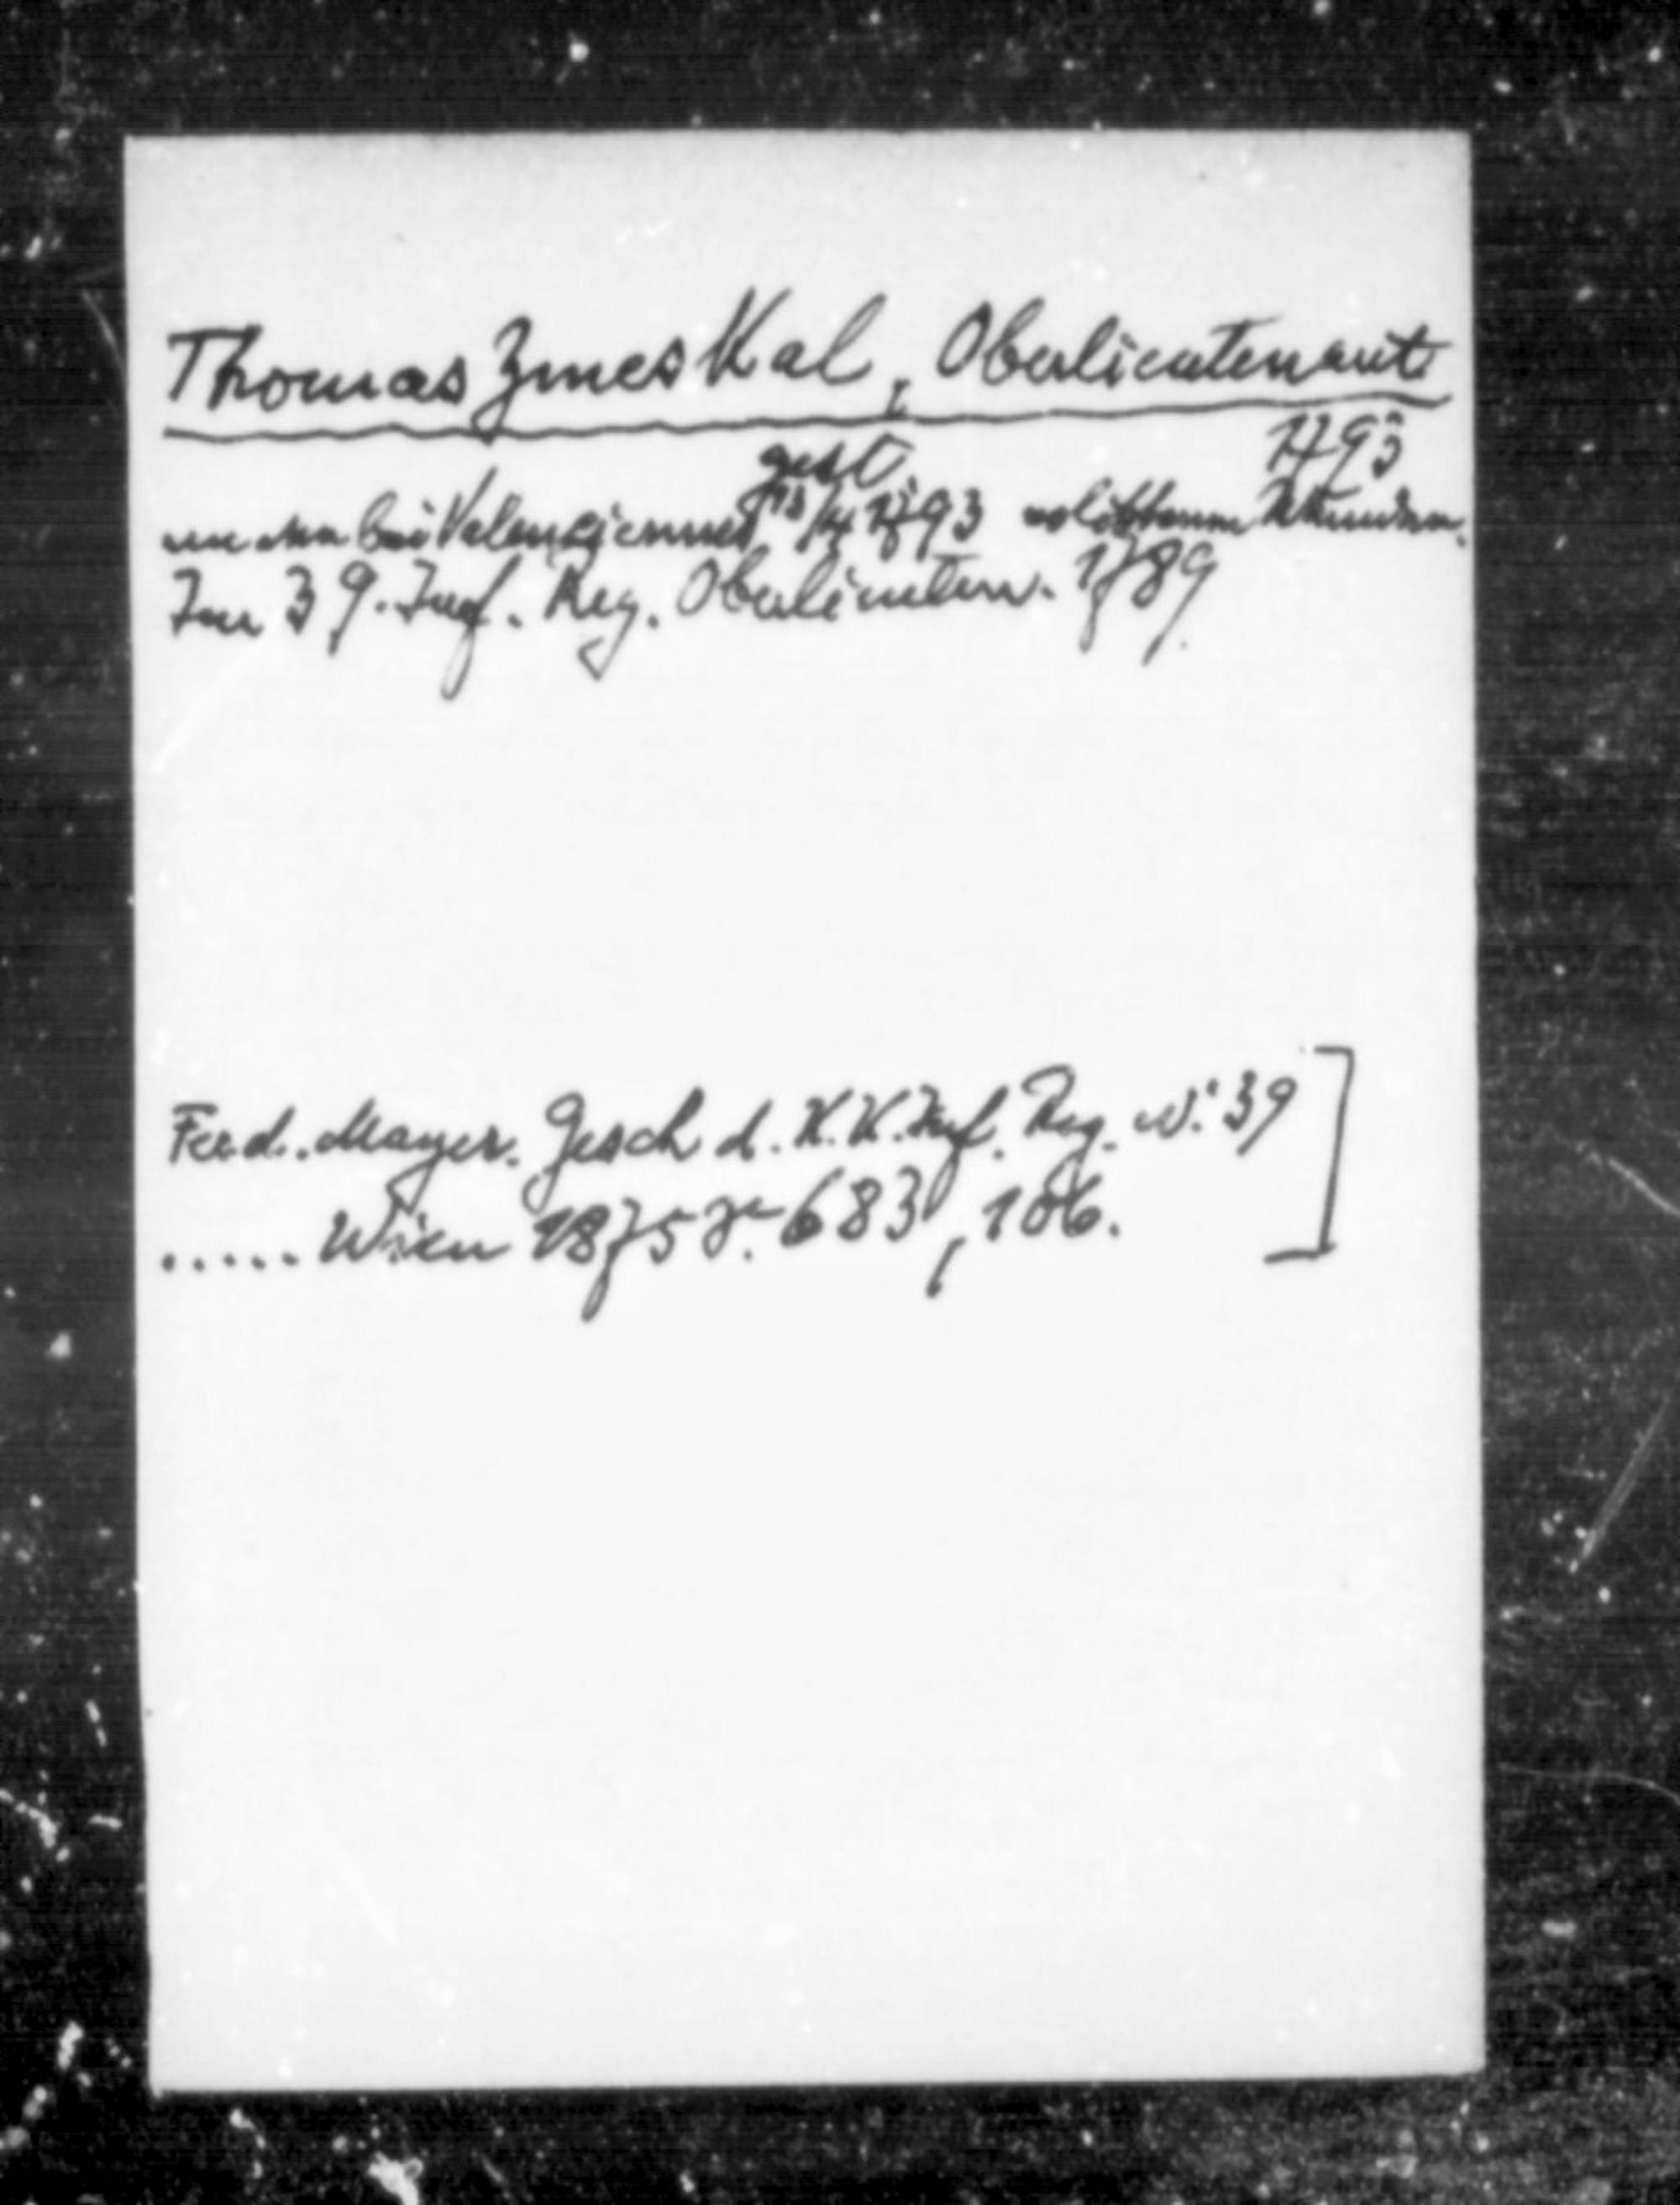 Thomas Zmeskal, Oberlieutenant
1793
gest
an den bei Valenciennes 13/4 1793 erlittenen Wunden.
Im 39. Inf. Reg. Oberlieuten. 1789
Ferd. Mayer. Gesch d. K. K. Inf. Reg. N: 39
..... Wien 1875 S. 683, 106.